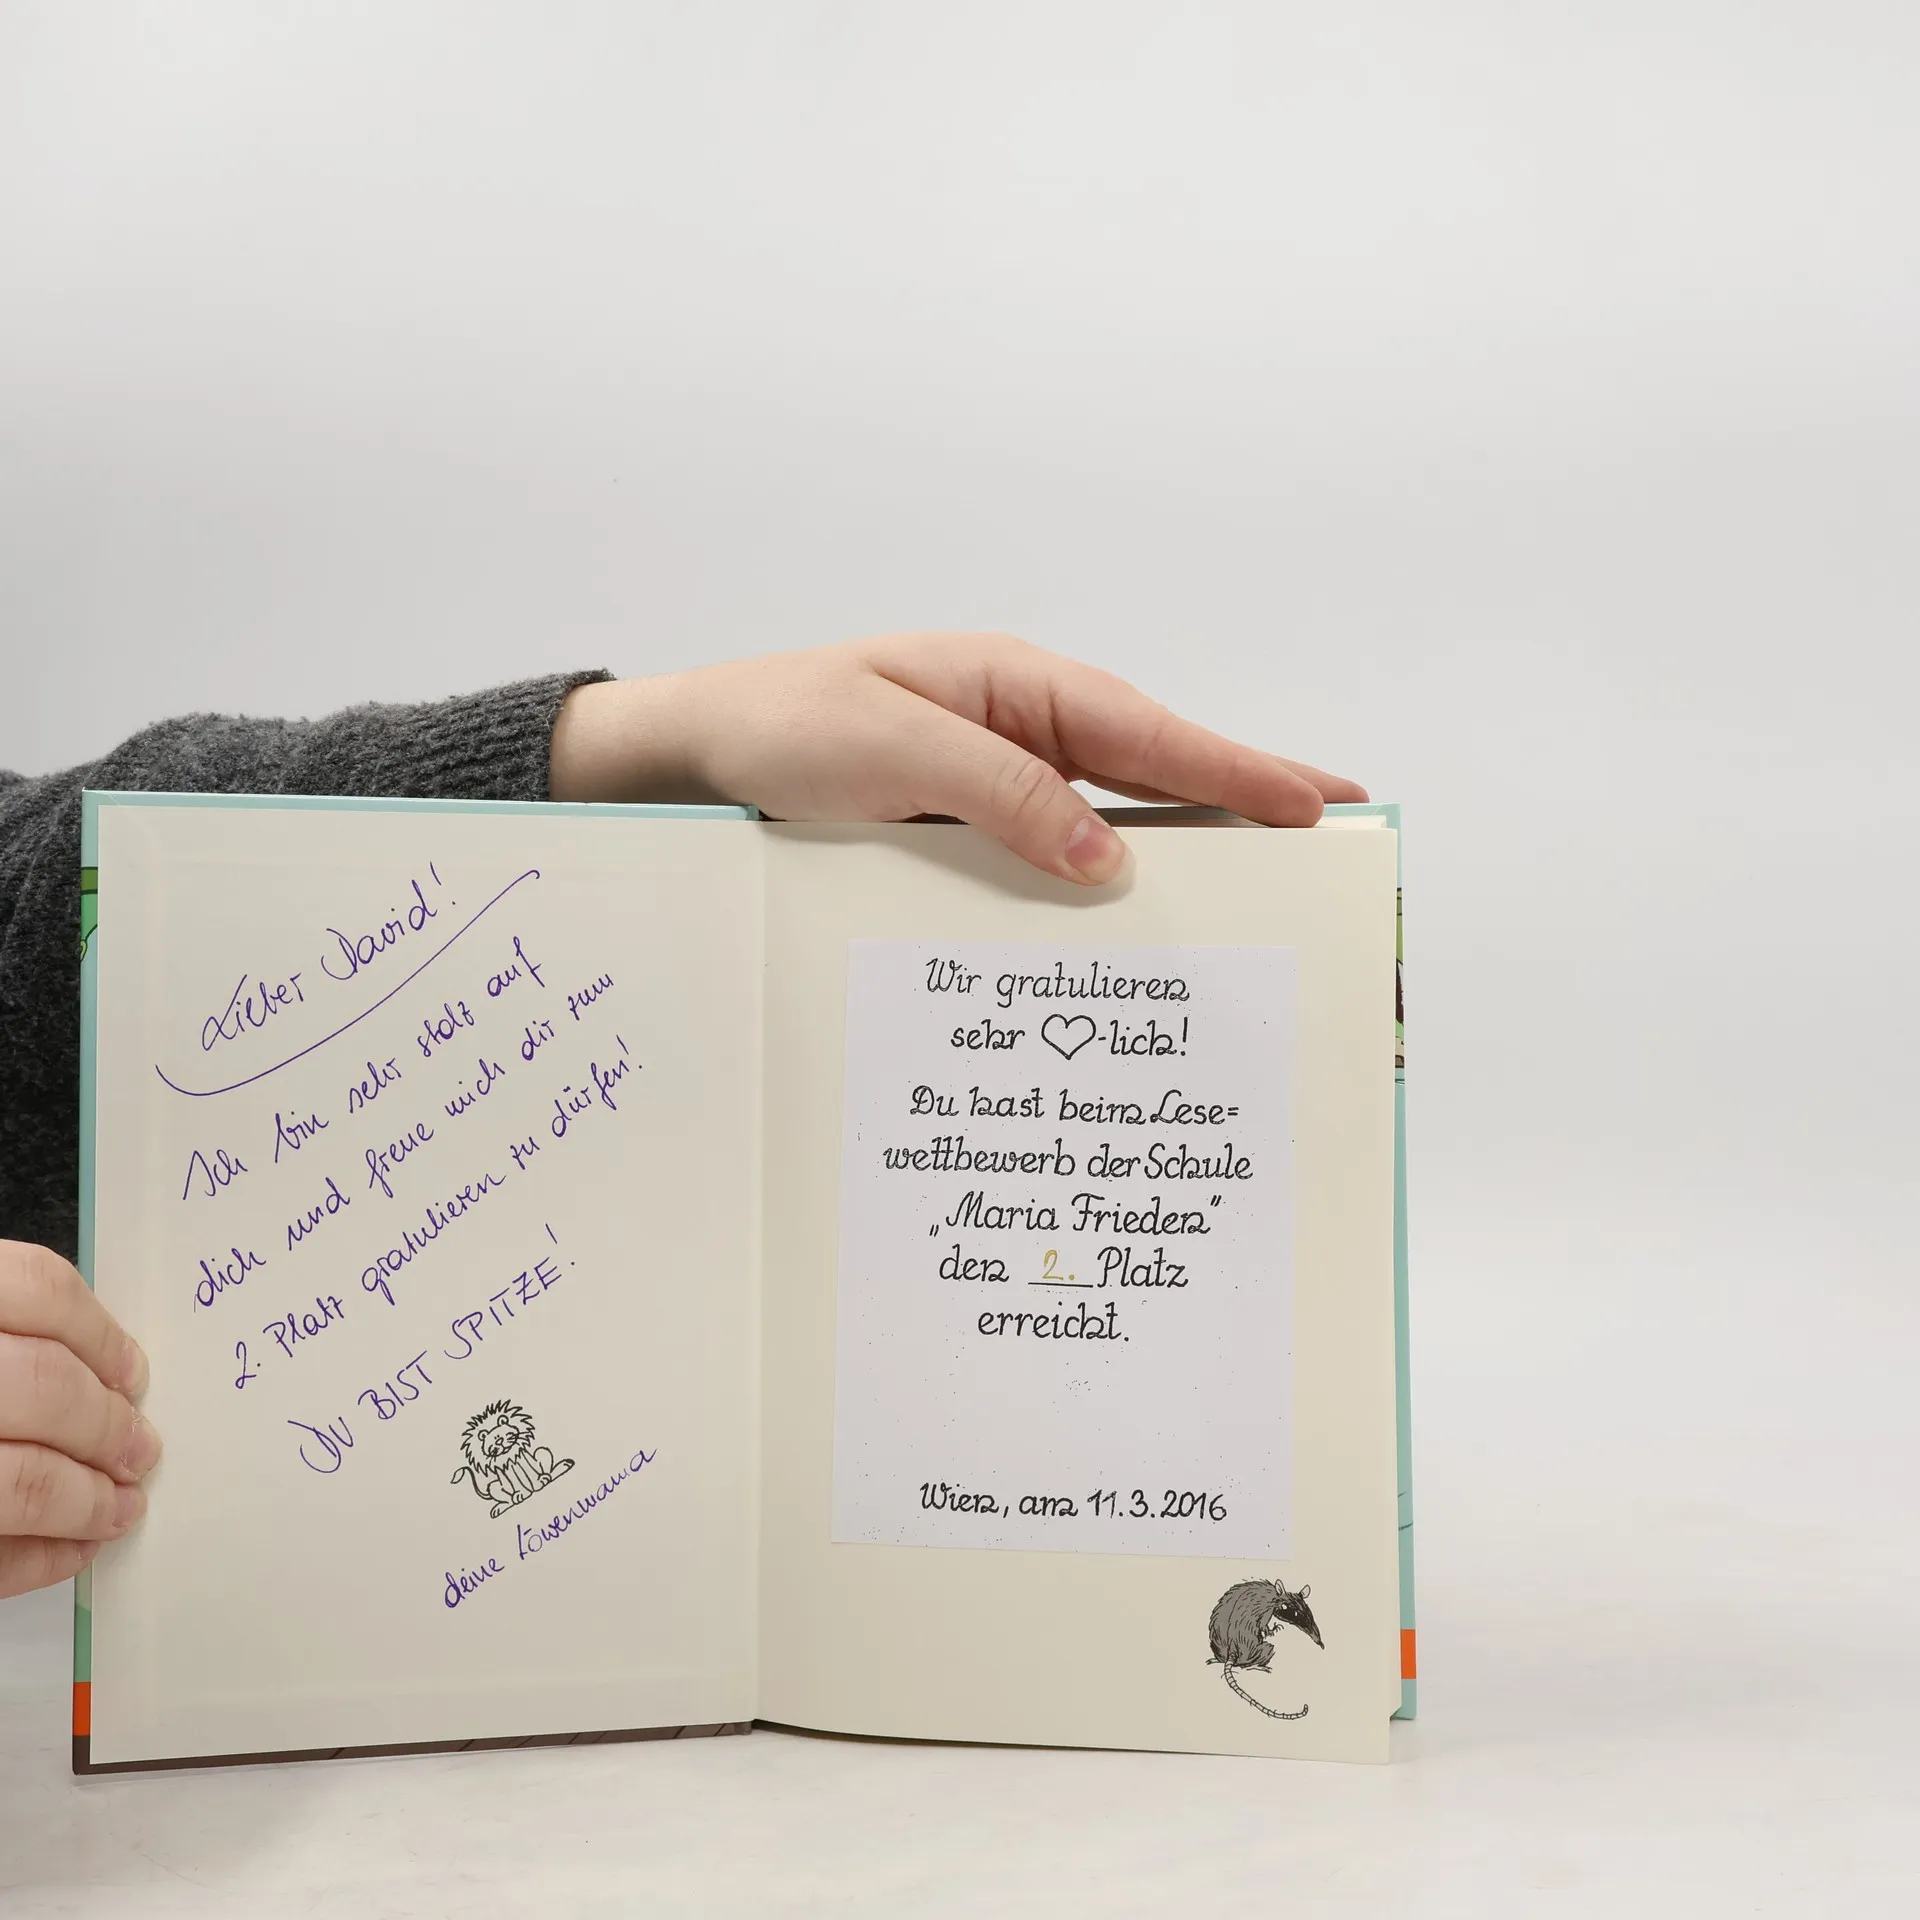 Lieber David!
Ich bin sehr stolz auf
dich und freue mich dir zum
2. Platz gratulieren zu dürfen!
DU BIST SPITZE!
deine Löwenmama
Wir gratulieren
sehr ♡-lich!
Du hast beim Lese=
wettbewerb der Schule
„Maria Frieden"
den 2. Platz
erreicht.
Wien, am 11.3.2016